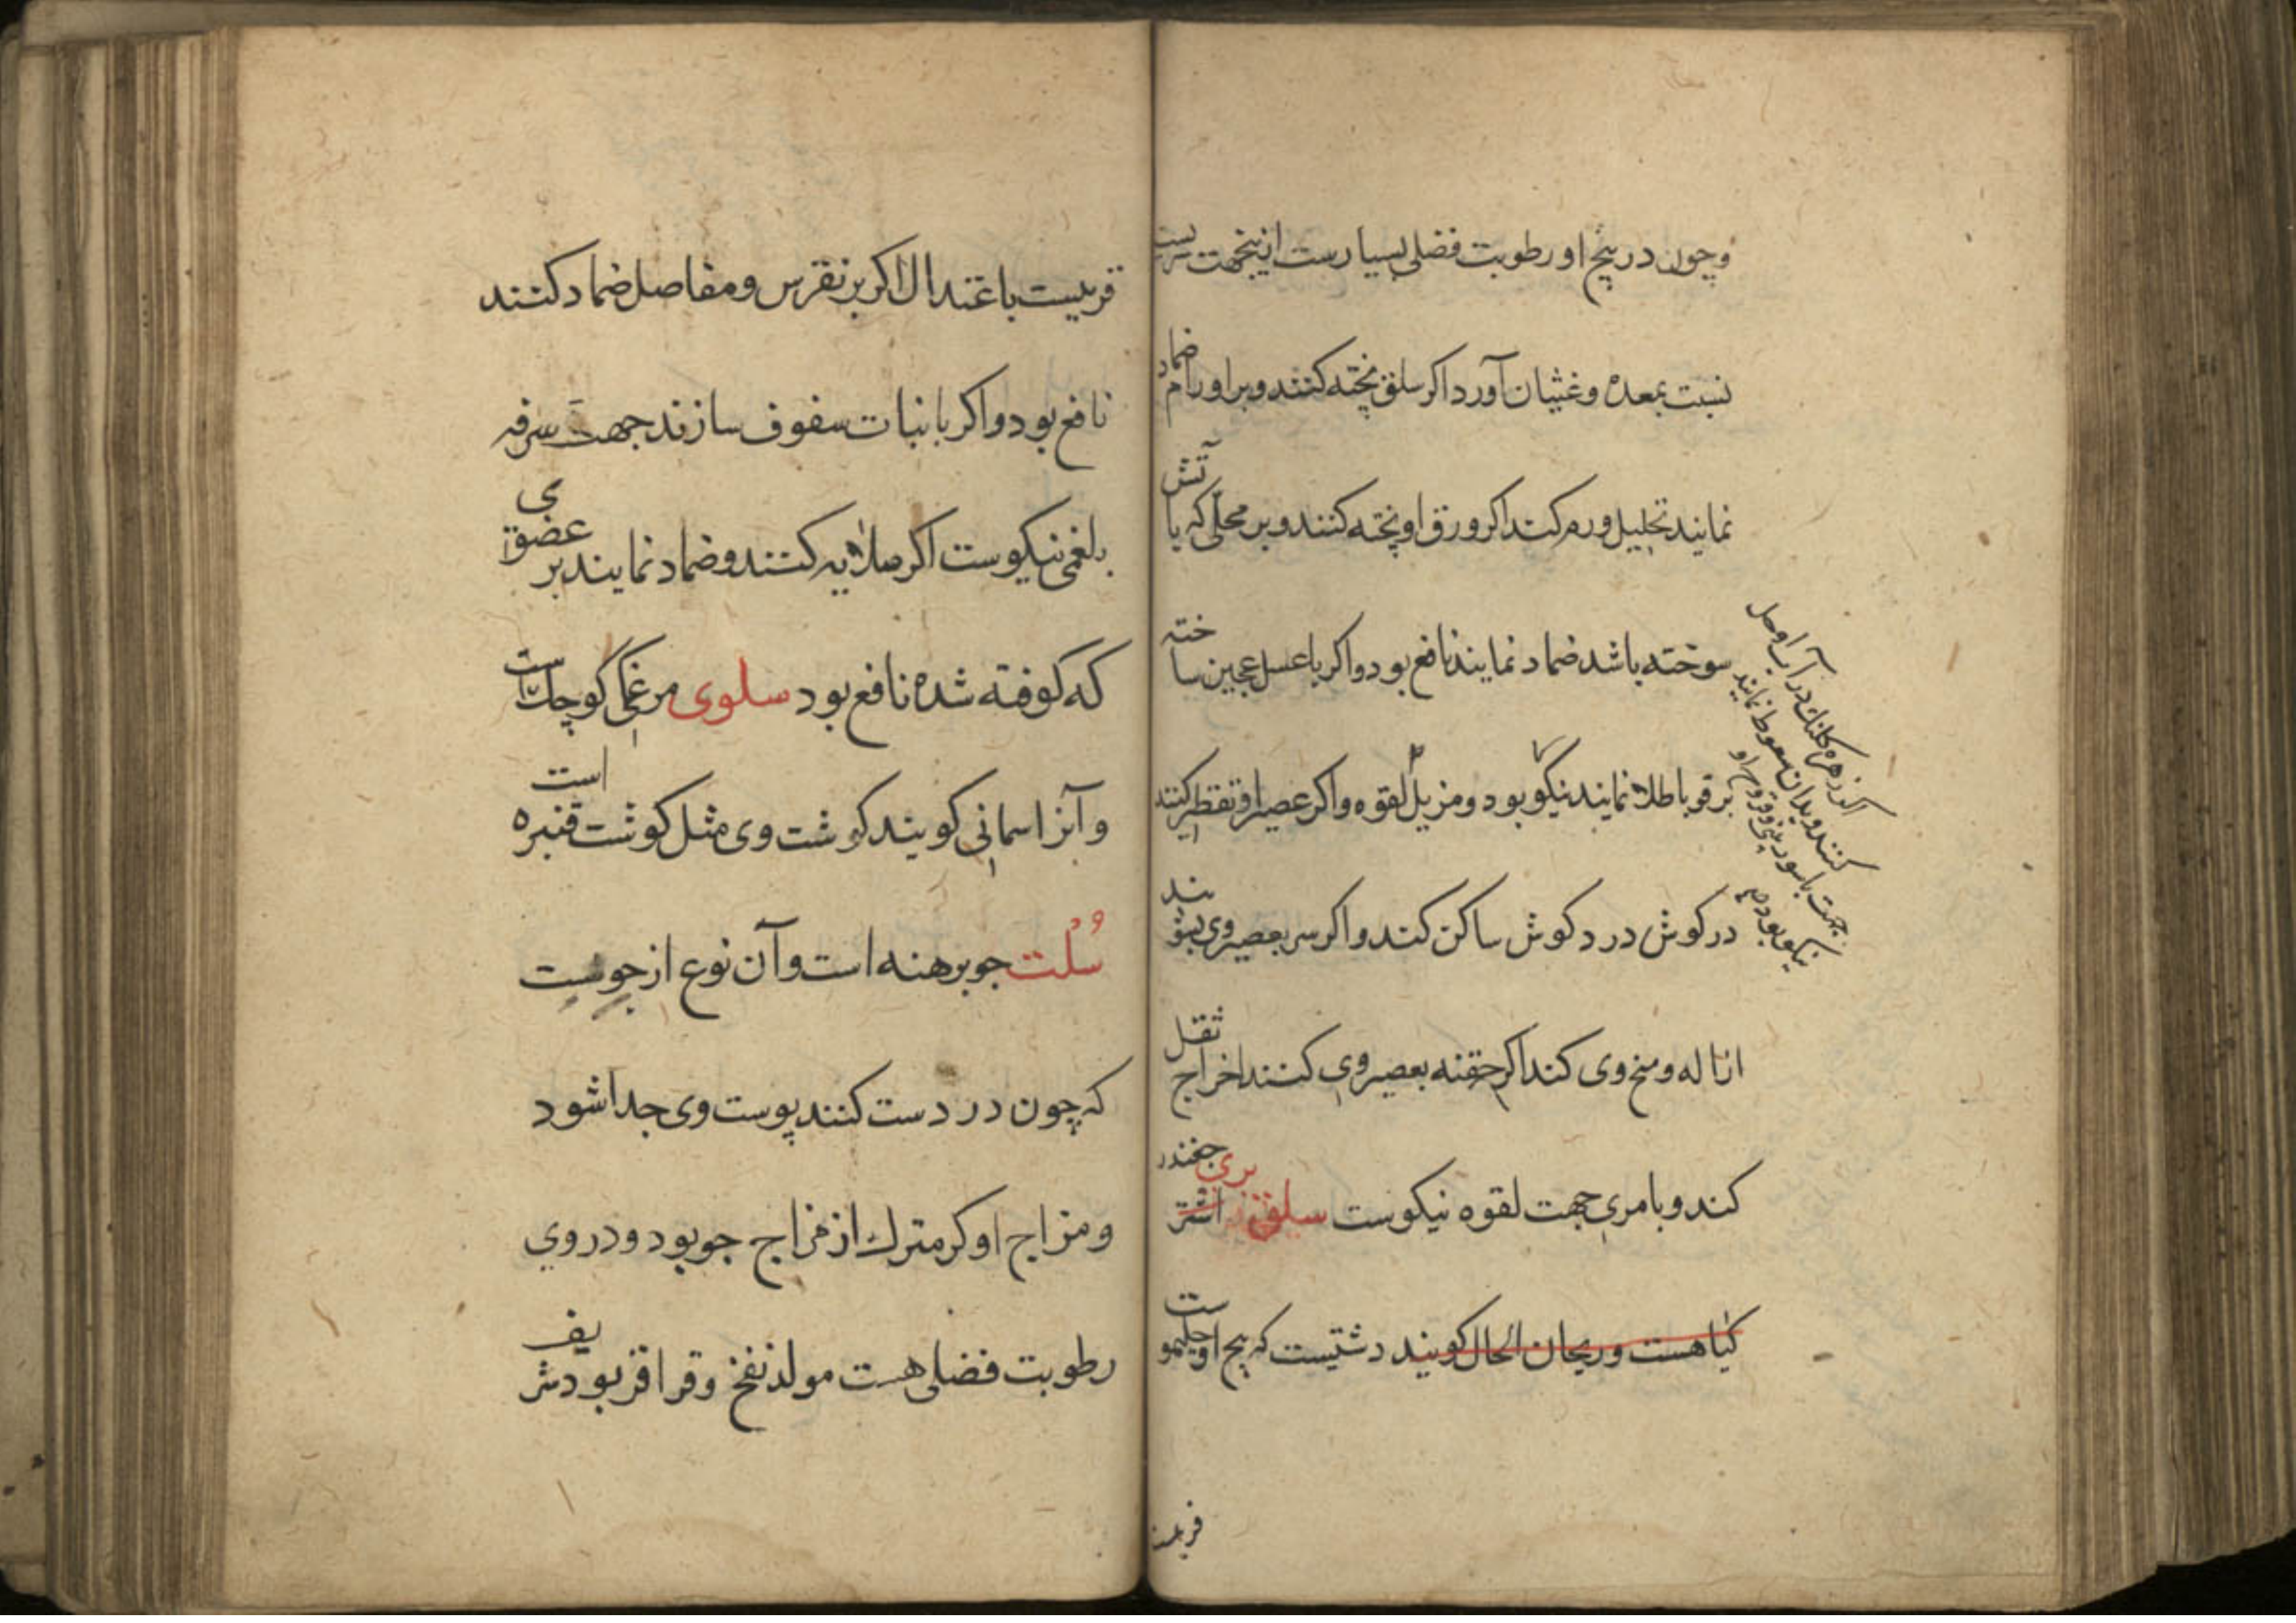 وچون در بیخ او رطوبت فضلی بسیارست ازینجهت
نسبت بمعده وغثیان آورد اکر سلق پخته کنند و بر اورام ضماد
نمایند تحلیل ورم کند اکر ورق او پخته کنند و بر محلّی که با آتش
سوخته باشد ضماد نمایند نافع بود واکر با عسل عجین ساخته
بر قوبا طلا نمایند نیکو بود ومزیل لقوه واکر عصیر او تقطیر کنند
در کوش درد کوش ساکن کند واکر سر بعصیر وی بشویند
ازاله وسخ وی کند اکر حقنه بعصیر وی کنند اخراج ثقل
کند وبامری جهت لقوه نیکوست سلق بری چغندر
کیاهست وریحان الحال کویند دشتیست که بیخ او
اکر زهره کلنک در آب او حل
کنند وبدان سعوط نمایند
جهت باسور بینی وقروح او
نیکو بود
قریبست
قریبست باعتدال اکر بر نقرس ومفاصل ضماد کنند
نافع بود واکر با نبات سفوف سازند جهت سرفه
بلغمی نیکوست اکر صلایه کنند وضماد نمایند بر عضوی
که کوفته شده نافع بود سلوی مرغی کوچک است
وآنرا سمانی کویند کوشت وی مثل کوشت قنبره است
سُلْت جو برهنه است وآن نوع از جوست
که چون در دست کنند پوست وی جدا شود
ومزاج او کرمترك از مزاج جو بود ودر وی
رطوبت فضلی هست مولد نفخ وقراقر بود